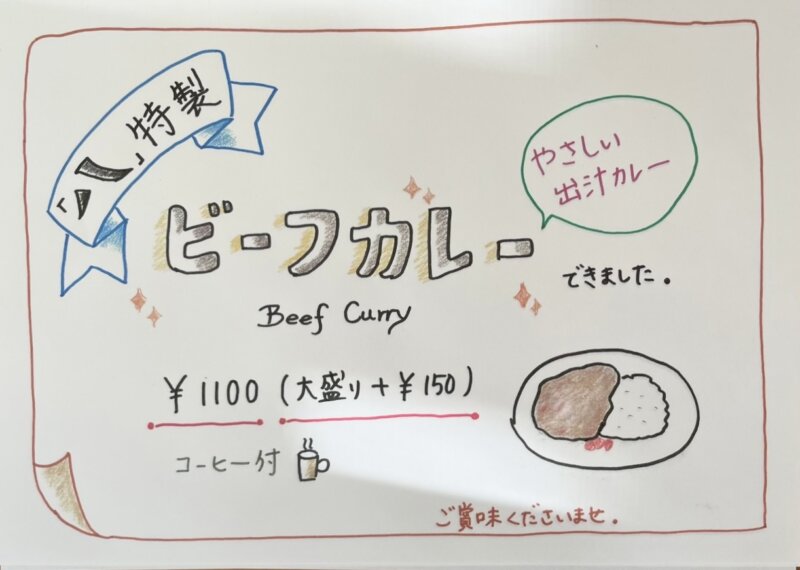 「八」特製
やさしい
出汁カレー
ビーフカレー
できました。
Beef Curry
¥1100 (大盛り+¥150)
コーヒー付
ご賞味くださいませ。